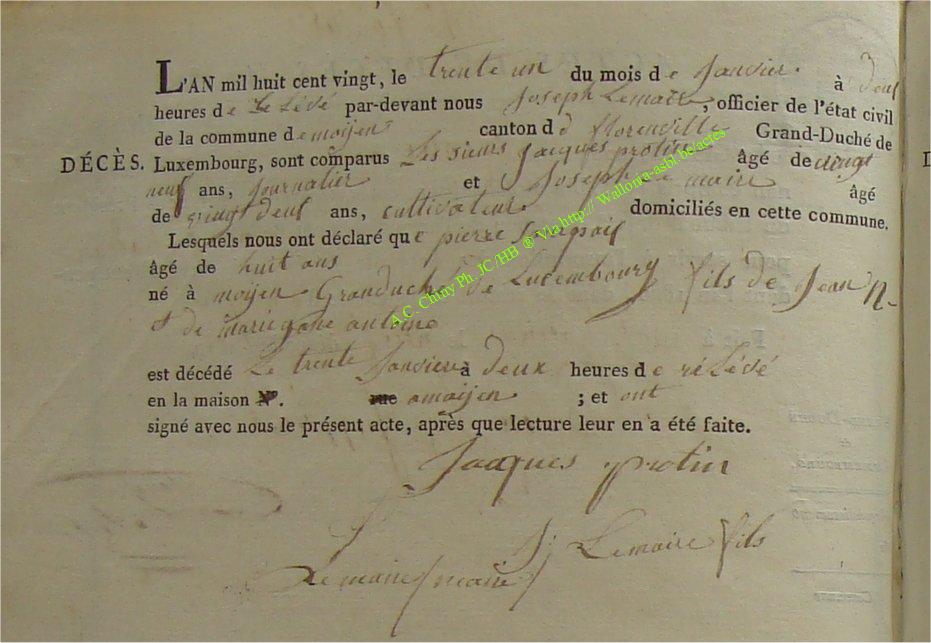 L'AN mil huit cent vingt, le trente un du mois de Janvier à deuf
heures de Relévé par-devant nous Joseph Lemaire, officier de l'état civil
de la commune de moyen canton d florenville Grand-Duché de
DÉCÈS. Luxembourg, sont comparus Les sieurs jacques protin âgé de vingt
neuf ans, journalier et Joseph Le maire âgé
de vingt deuf ans, cultivateur domiciliés en cette commune.
Lesquels nous ont déclaré que pierre
âgé de huit ans
né à moyen Granduché de Lucembourg fils de Jean N-
et de mariejane antoine
est décédé Le trente Janvier à deux heures de rélévé
en la maison N°. rue a moijen ; et ont
signé avec nous le présent acte, après que lecture leur en a été faite.
Jacques protin
J Lemaire fils
Lemaire maire
A.C. Chiny Ph. JC/HB ® Via http:// Wallonia-asbl.be/actes